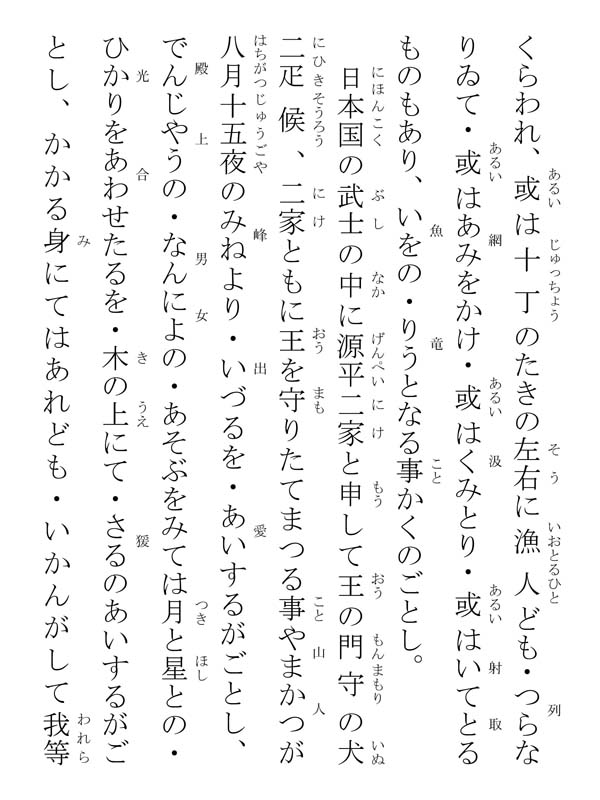 くらわれ、或は十丁のたきの左右に漁人ども・つらな
りゐて・或はあみをかけ・或はくみとり・或はいてとる
ものもあり、いをの・りうとなる事かくのごとし。
日本国の武士の中に源平二家と申して王の門守の犬
二疋候、二家ともに王を守りたてまつる事やまかつが
八月十五夜のみねより・いづるを・あいするがごとし、
でんじやうの・なんによの・あそぶをみては月と星との・
ひかりをあわせたるを・木の上にて・さるのあいするがご
とし、かかる身にてはあれども・いかんがして我等